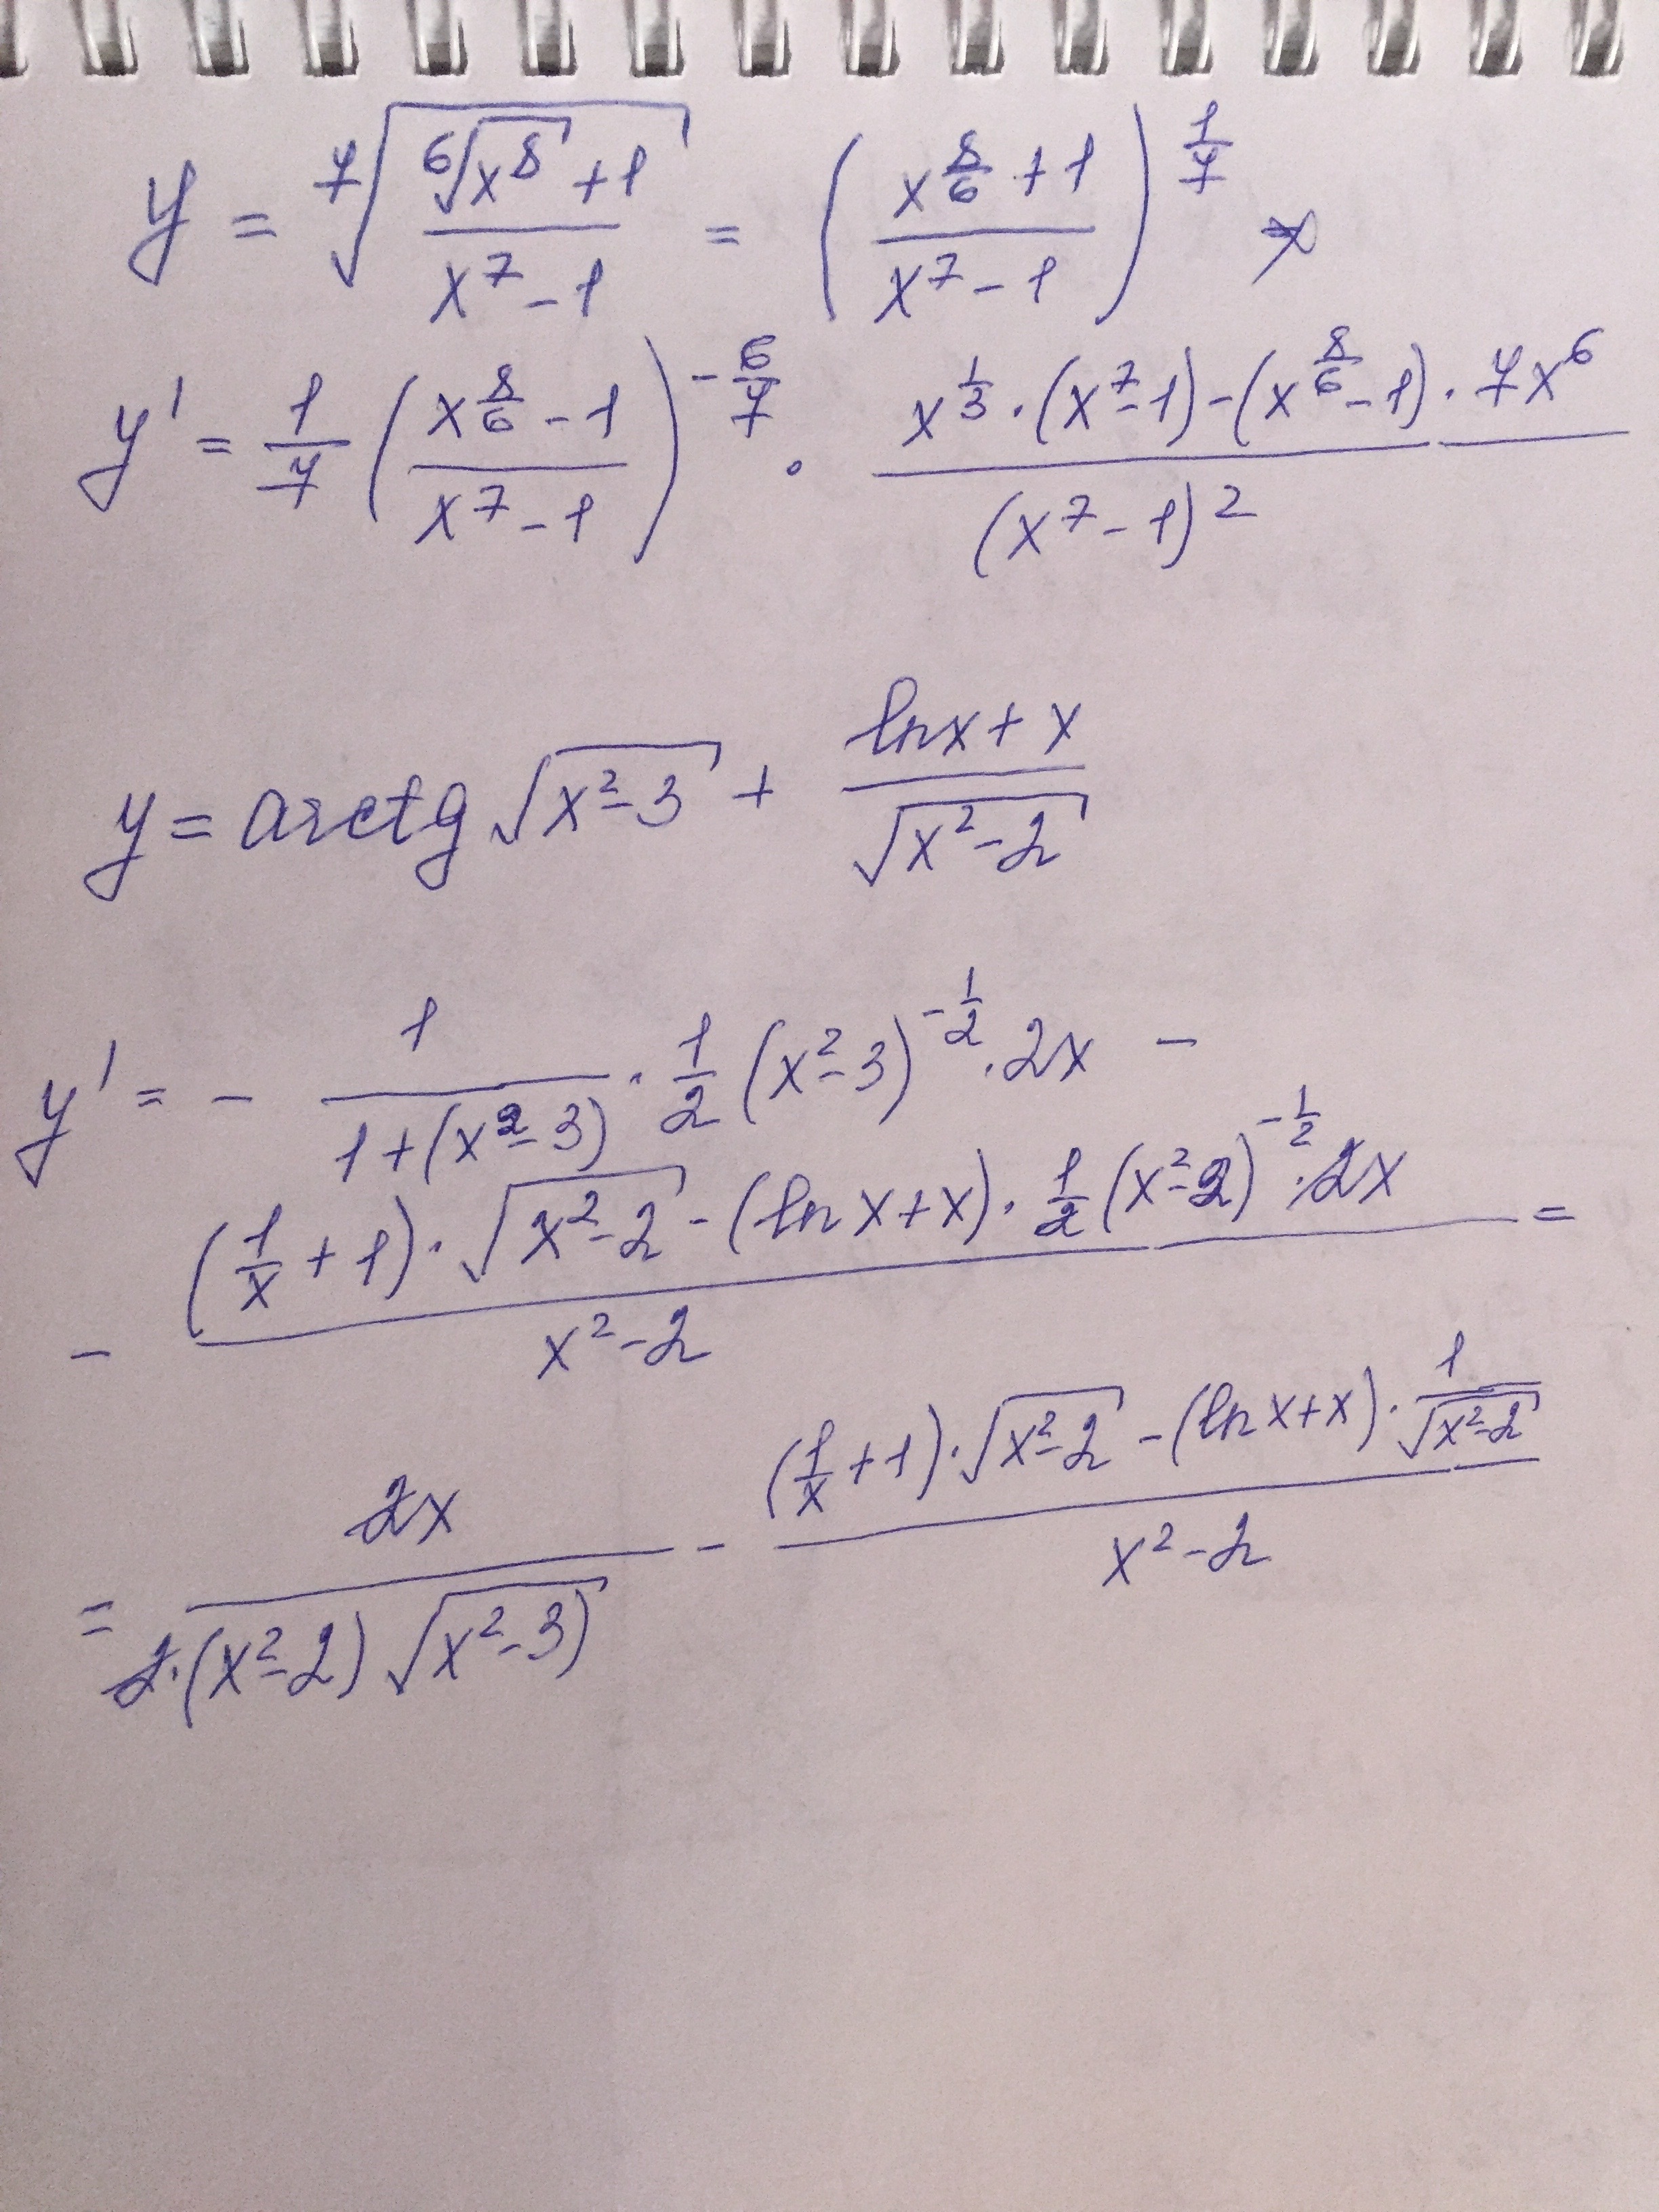 y = ⁷√((⁶√(x⁸) + 1)/(x⁷ - 1)) = ((x^(8/6) + 1)/(x⁷ - 1))^(1/7)
y' = 1/7 ((x^(8/6) - 1)/(x⁷ - 1))^(-6/7) · (x^(1/3) · (x⁷ - 1) - (x^(8/6) - 1) · 7x⁶)/(x⁷ - 1)²
y = arctg √(x² - 3) + (ln x + x)/√(x² - 2)
y' = - 1/(1 + (x² - 3)) · 1/2 (x² - 3)^(-1/2) · 2x -
- ((1/x + 1) · √(x² - 2) - (ln x + x) · 1/2 (x² - 2)^(-1/2) · 2x)/(x² - 2) =
= 2x/(2 · (x² - 2) √(x² - 3)) - ((1/x + 1) · √(x² - 2) - (ln x + x) · 1/√(x² - 2))/(x² - 2)